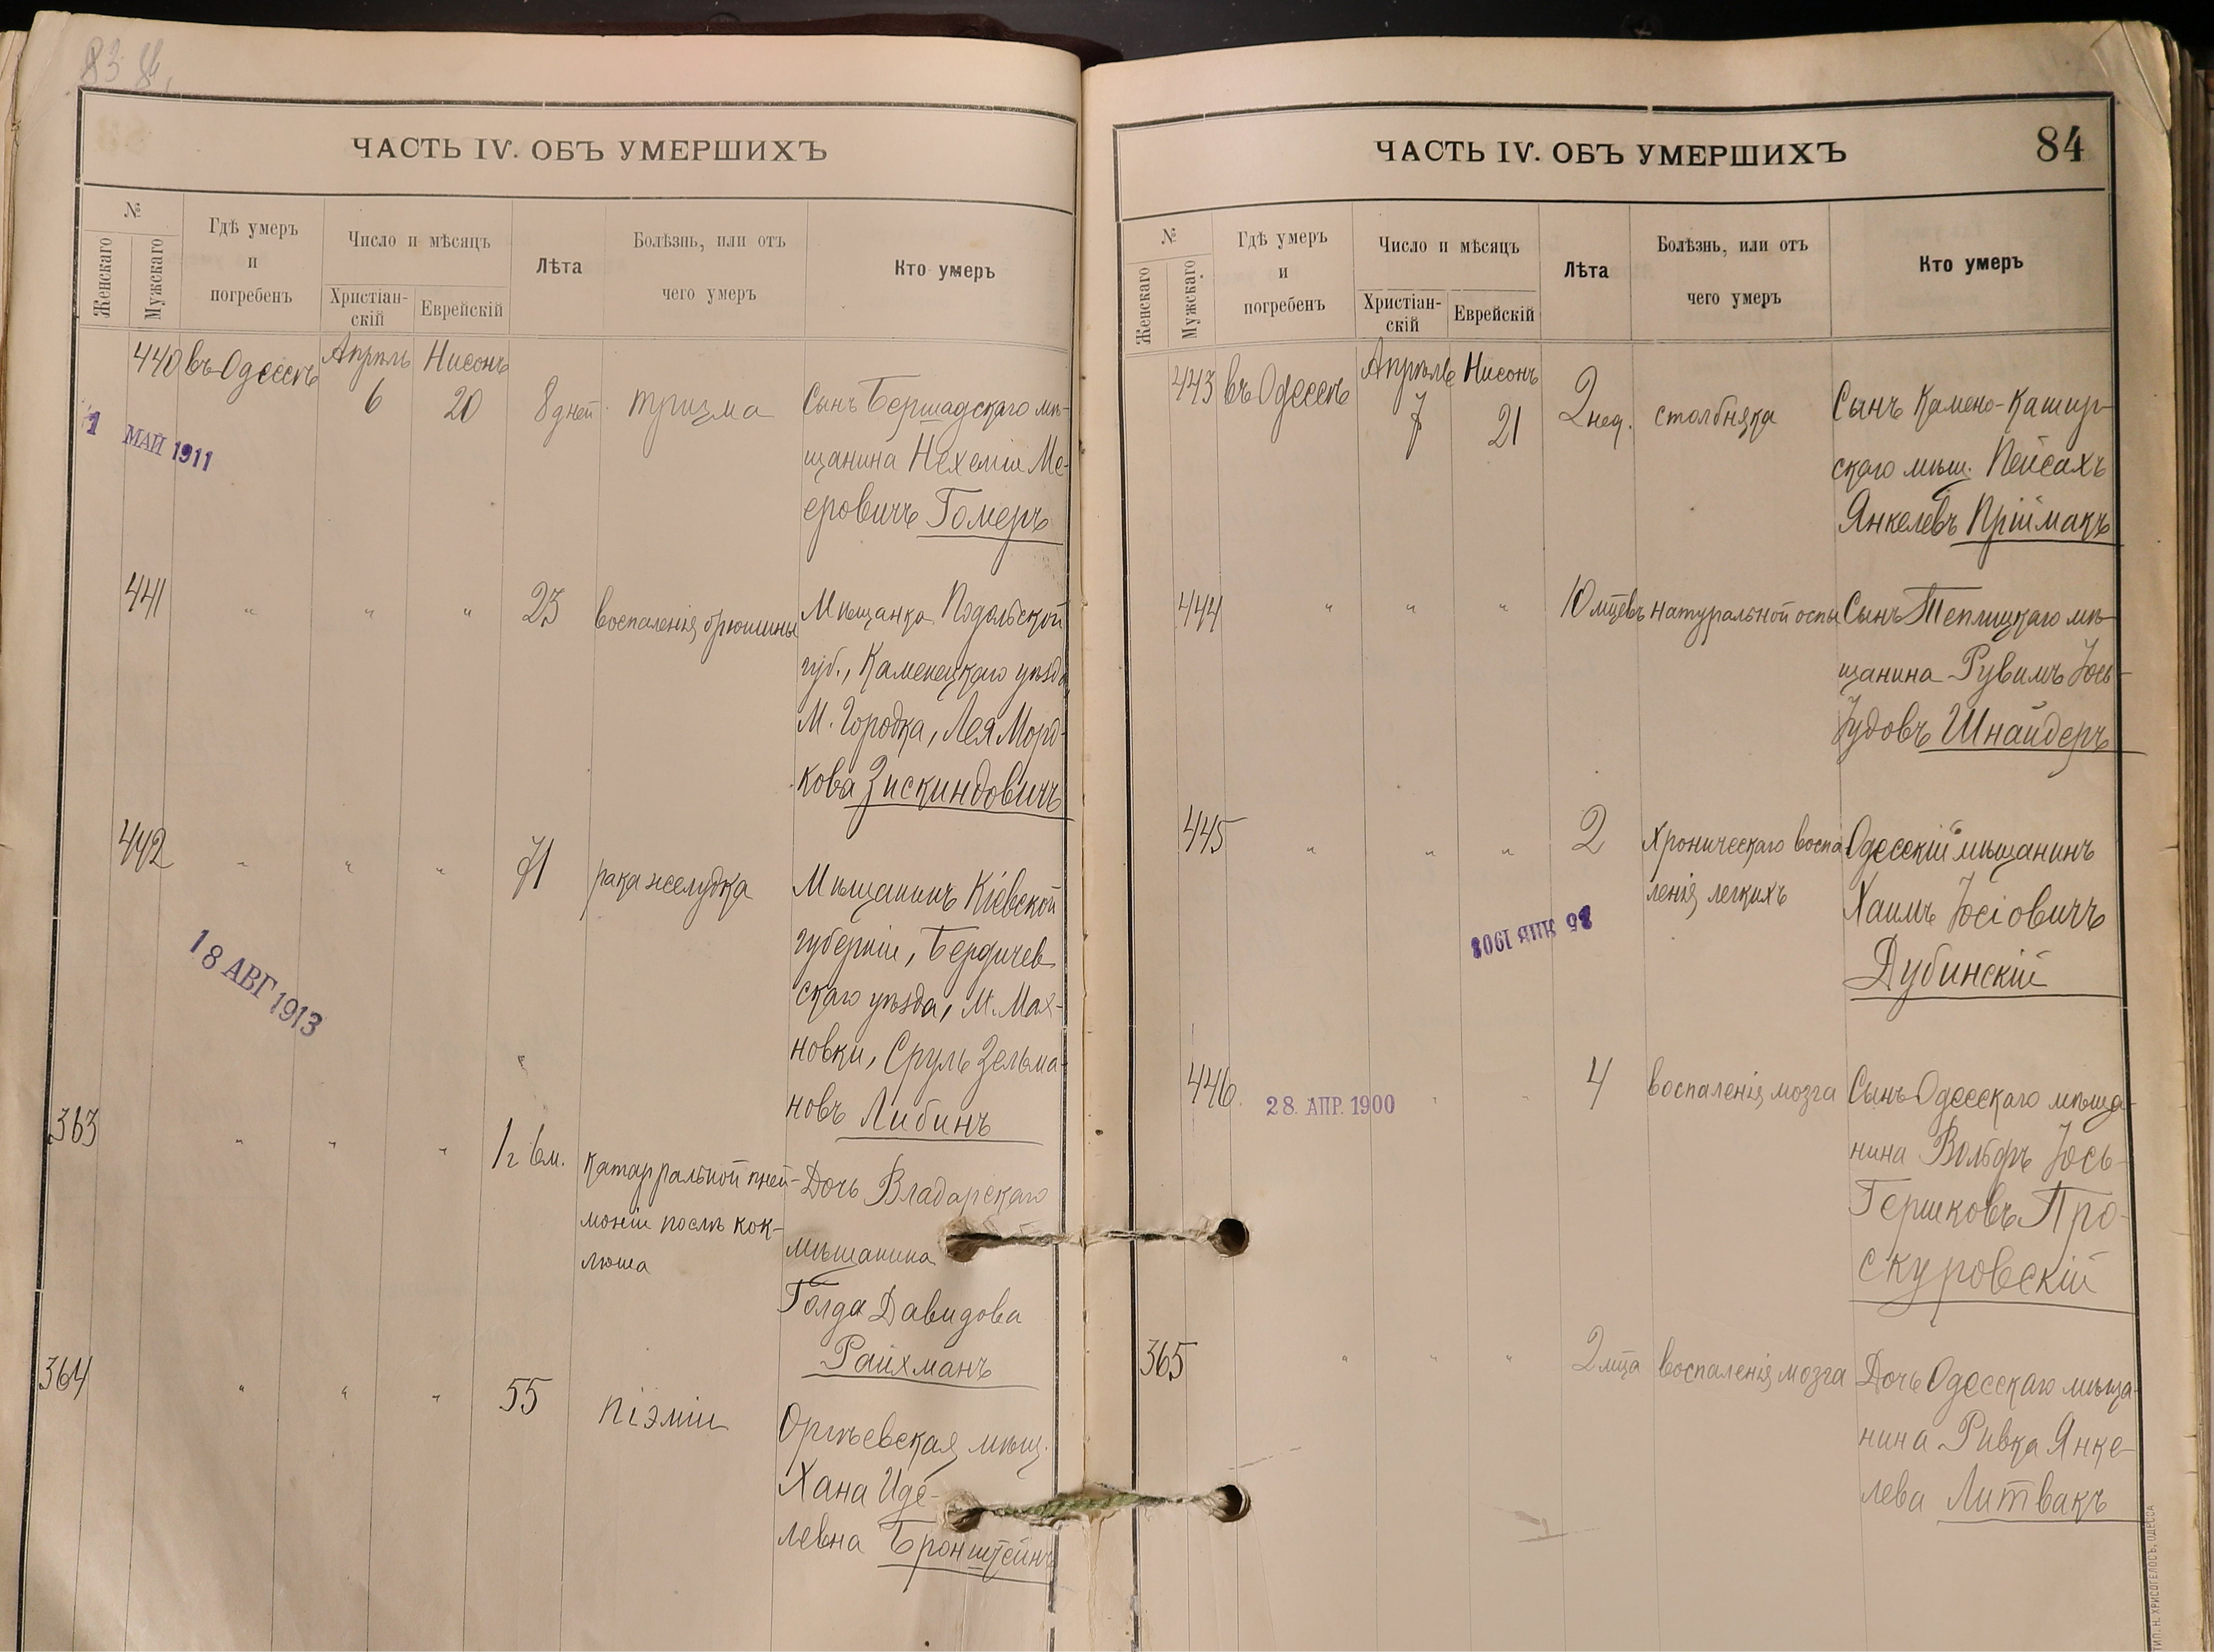 83
ЧАСТЬ IV. ОБЪ УМЕРШИХЪ
№
Женскаго
Мужскаго
Гдѣ умеръ
и
погребенъ
Число и мѣсяцъ
Христіан-
скій
Еврейскій
Лѣта
Болѣзнь, или отъ
чего умеръ
Кто умеръ
440 въ Одессѣ Апрѣль 6 Нисонъ 20 8 дней тризма Сынъ Бершадскаго мѣ-
щанина Нехемія Ме-
еровичъ Гомеръ
1 МАЙ 1911
441 " " " 23 воспаленія брюшины Мѣщанка Подольской
губ., Каменецкаго уѣзда,
М. Городка, Лея Морд-
кова Зискиндовичъ
442 " " " 71 рака желудка Мѣщанинъ Кіевской
губерніи, Бердичев
скаго уѣзда, М. Мах-
новки, Сруль Зельма-
новъ Либинъ
18 АВГ 1913
363 " " " 1 г 6 м. катарральной пней-
моніи послѣ кок-
люша
Дочь Владарскаго
мѣщанина
Голда Давидова
Райхманъ
364 " " " 55 піэміи Оргѣевская мѣщ.
Хана Иде-
левна Бронштейнъ
ЧАСТЬ IV. ОБЪ УМЕРШИХЪ
84
№
Женскаго
Мужскаго
Гдѣ умеръ
и
погребенъ
Число и мѣсяцъ
Христіан-
скій
Еврейскій
Лѣта
Болѣзнь, или отъ
чего умеръ
Кто умеръ
443 въ Одессѣ Апрѣль 7 Нисонъ 21 2 нед. столбняка Сынъ Камено-Кашир-
скаго мѣщ. Пейсахъ
Янкелевъ Пріймакъ
444 " " " 10 мцевъ натуральной оспы Сынъ Теплицкаго мѣ-
щанина Рувимъ Іось-
Іудовъ Шнайдеръ
445 " " " 2 хроническаго воспа
ленія легкихъ
Одесскій мѣщанинъ
Хаимъ Іосіовичъ
Дубинскій
25 ЯНВ 1908
446 28. АПР. 1900 " " 4 воспаленія мозга Сынъ Одесскаго мѣща-
нина Вольфъ Іось-
Гершковъ Про-
скуровскій
365 " " " 2 мца воспаленія мозга Дочь Одесскаго мѣща-
нина Ривка Янке-
лева Литвакъ
ТИП. Н. ХРИСОГЕЛОСЪ, ОДЕССА